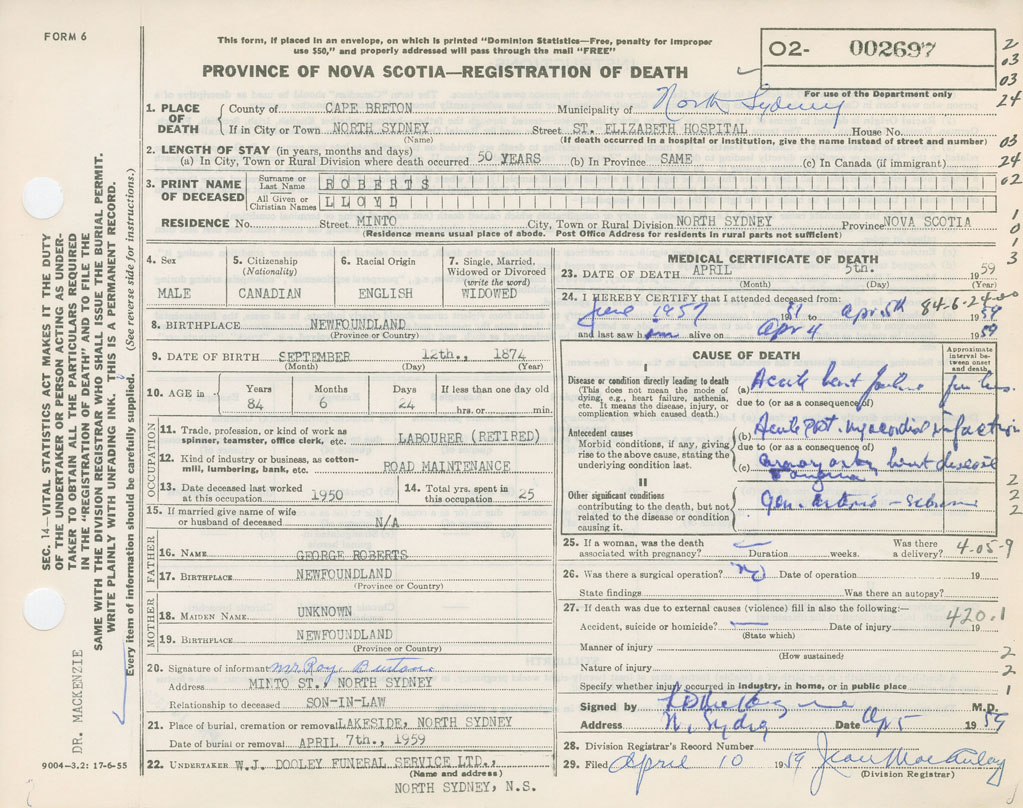 FORM 6
This form, if placed in an envelope, on which is printed "Dominion Statistics—Free, penalty for improper
use $50," and properly addressed will pass through the mail "FREE"
PROVINCE OF NOVA SCOTIA—REGISTRATION OF DEATH
02- 002697
For use of the Department only
2
03
03
24
03
24
02
1
0
1
3
1. PLACE OF DEATH
County of CAPE BRETON Municipality of North Sydney
If in City or Town NORTH SYDNEY Street ST. ELIZABETH HOSPITAL House No.
(Name) (If death occurred in a hospital or institution, give the name instead of street and number)
2. LENGTH OF STAY (in years, months and days)
(a) In City, Town or Rural Division where death occurred 50 YEARS (b) In Province SAME (c) In Canada (if immigrant)
3. PRINT NAME OF DECEASED
Surname or Last Name ROBERTS
All Given or Christian Names LLOYD
RESIDENCE No. Street MINTO City, Town or Rural Division NORTH SYDNEY Province NOVA SCOTIA
(Residence means usual place of abode. Post Office Address for residents in rural parts not sufficient)
4. Sex
MALE
5. Citizenship
(Nationality)
CANADIAN
6. Racial Origin
ENGLISH
7. Single, Married,
Widowed or Divorced
(write the word)
WIDOWED
8. BIRTHPLACE NEWFOUNDLAND
(Province or Country)
9. DATE OF BIRTH SEPTEMBER 12th., 1874
(Month) (Day) (Year)
10. AGE in
Years Months Days If less than one day old
84 6 24 hrs. or min.
OCCUPATION
11. Trade, profession, or kind of work as
spinner, teamster, office clerk, etc. LABOURER (RETIRED)
12. Kind of industry or business, as cotton-
mill, lumbering, bank, etc. ROAD MAINTENANCE
13. Date deceased last worked
at this occupation 1950
14. Total yrs. spent in
this occupation 25
15. If married give name of wife
or husband of deceased N/A
FATHER
16. NAME GEORGE ROBERTS
17. BIRTHPLACE NEWFOUNDLAND
(Province or Country)
MOTHER
18. MAIDEN NAME UNKNOWN
19. BIRTHPLACE NEWFOUNDLAND
(Province or Country)
20. Signature of informant Mr. Roy Burton
Address MINTO ST., NORTH SYDNEY
Relationship to deceased SON-IN-LAW
21. Place of burial, cremation or removal LAKESIDE, NORTH SYDNEY
Date of burial or removal APRIL 7th., 1959
22. UNDERTAKER W.J. DOOLEY FUNERAL SERVICE LTD.,
(Name and address)
NORTH SYDNEY, N.S.
MEDICAL CERTIFICATE OF DEATH
23. DATE OF DEATH APRIL 5th. 1959
(Month) (Day) (Year)
24. I HEREBY CERTIFY that I attended deceased from: 84-6-24
June 1957 19 to Apr 5th 1959
and last saw him alive on Apr 4 1959
CAUSE OF DEATH
Approximate
interval be-
tween onset
and death
I
Disease or condition directly leading to death
(This does not mean the mode of
dying, e.g., heart failure, asthenia,
etc. It means the disease, injury, or
complication which caused death.)
(a) Acute heart failure few hrs.
due to (or as a consequence of)
Antecedent causes
Morbid conditions, if any, giving
rise to the above cause, stating the
underlying condition last.
(b) Acute post. myocardial infarction
due to (or as a consequence of)
(c) heart disease
II
Other significant conditions
contributing to the death, but not
related to the disease or condition
causing it.
Gen.
2
2
2
25. If a woman, was the death
associated with pregnancy? Duration weeks. Was there
a delivery? 4-05-9
26. Was there a surgical operation? no Date of operation 19
State findings Was there an autopsy?
27. If death was due to external causes (violence) fill in also the following:—
420.1
Accident, suicide or homicide? Date of injury 19
(State which)
Manner of injury 2
(How sustained)
Nature of injury 2
Specify whether injury occurred in industry, in home, or in public place 1
Signed by M.D.
Address N. Sydney Date Ap 5 1959
28. Division Registrar's Record Number
29. Filed April 10 1959 Jean MacAulay
(Division Registrar)
SEC. 14—VITAL STATISTICS ACT MAKES IT THE DUTY
OF THE UNDERTAKER OR PERSON ACTING AS UNDER-
TAKER TO OBTAIN ALL THE PARTICULARS REQUIRED
IN THE "REGISTRATION OF DEATH" AND TO FILE THE
SAME WITH THE DIVISION REGISTRAR WHO SHALL ISSUE THE BURIAL PERMIT.
WRITE PLAINLY WITH UNFADING INK. THIS IS A PERMANENT RECORD.
Every item of information should be carefully supplied. (See reverse side for instructions.)
DR. MACKENZIE
9004-3.2: 17-6-55